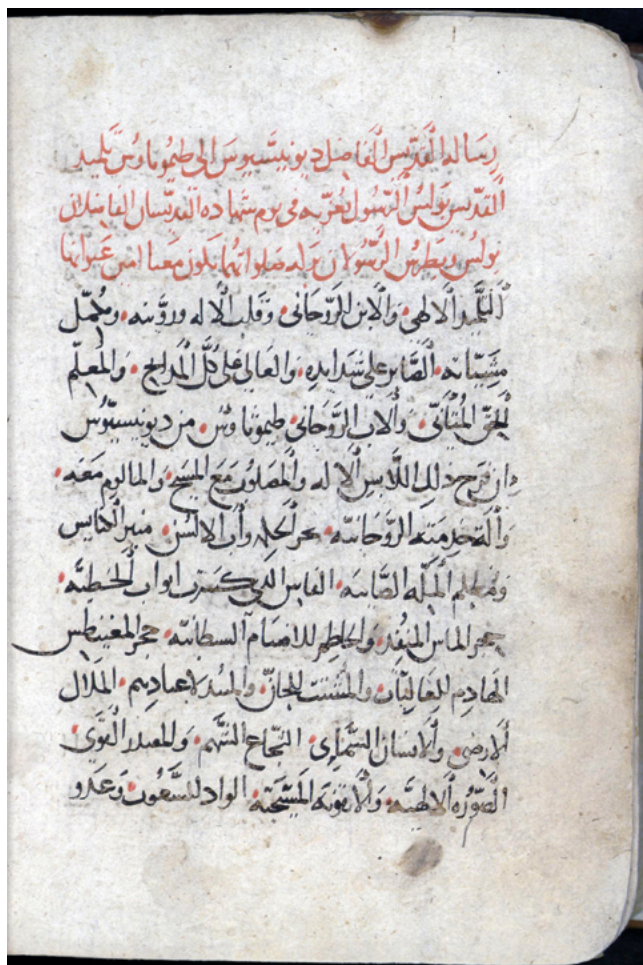 رساله القديس الفاضل ديونيسيوس الى طيموثاوس تلميد
القديس بولس الرسول يعزيه فى يوم شهاده القديسان الفاضلان
بولس وبطرس الرسولان بركه صلواتهما تكون معنا امين
التلميد الالاهى والابن الروحانى وقلب الاله ورويته ومكمل
مشيياته الصابر على شدايده والعالى على كل المدايح والمعلم
الحق المتانى والاب الروحانى طيموثاوس من ديونيسيوس
ان فرح دلك اللابس الاله والمصلوب مع المسيح والمالوم معه
والة خدمته الروحانيه بحر الحكمه واب الالسن منبر الكنايس
ومعلم المله الصابيه الفاس الدى كسرت ابواب الخطيه
حجر الماس المنفد والحاطم للاصنام الشيطانيه حجر المغنيطس
الهادم للغاليات والمشتت للجان والمبيد لاعيادهم الملاك
الارضى والانسان السماى النجاح الشهم والمصدر القوى
الصوره الالهيه والايقونه المسيحيه الواد للشعوب وعدو